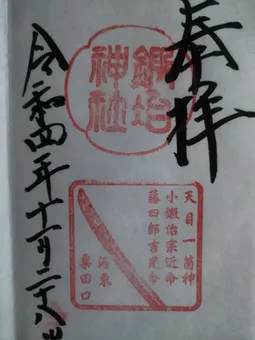 奉拝
鍛冶
神社
天目一箇神
小鍛冶宗近命
藤四郎吉光命
洛東
粟田口
令和四年十一月二十八日